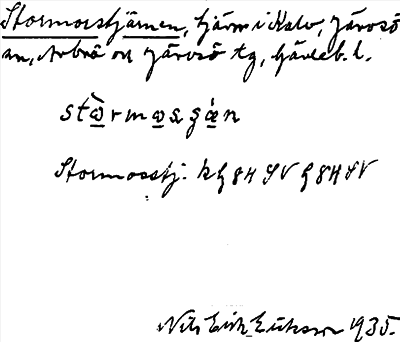 Stormosstjärnen, tjärn i Kalv, Järvsö
sn, Arbrå och Järvsö tg, Gävleb. l.
stɷ̀rmɷsʂǽn
Stormosstj. kg 8H SV g 8H SV
Nils Erik Eriksson 1935.